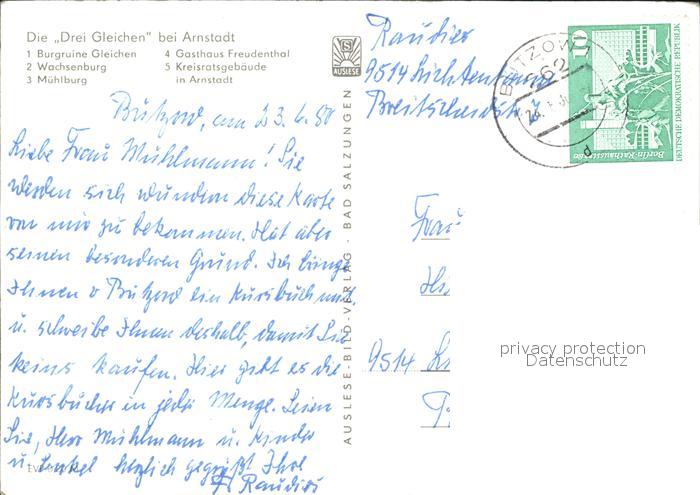 Die „Drei Gleichen" bei Arnstadt
1 Burgruine Gleichen
2 Wachsenburg
3 Mühlburg
4 Gasthaus Freudenthal
5 Kreisratsgebäude
in Arnstadt
AUSLESE
Bützow, am 23.6.80
Liebe Frau Mühlmann! Sie
werden sich wundern diese Karte
von mir zu bekommen. Hat aber
seinen besonderen Grund. Ich bringe
Ihnen v Bützow ein Kursbuch mit
u. schreibe Ihnen deshalb, damit Sie
keins kaufen. Hier gibt es die
Kursbücher in jeder Menge. Seien
Sie, Herr Mühlmann u. Kinder
u. Enkel herzlich gegrüßt Ihre
Raudies
AUSLESE-BILD-VERLAG · BAD SALZUNGEN
Raudies
9514
Breitscheidstr
BÜTZOW
10
DEUTSCHE DEMOKRATISCHE REPUBLIK
Berlin-Rathausstraße
Frau
9514
privacy protection
Datenschutz